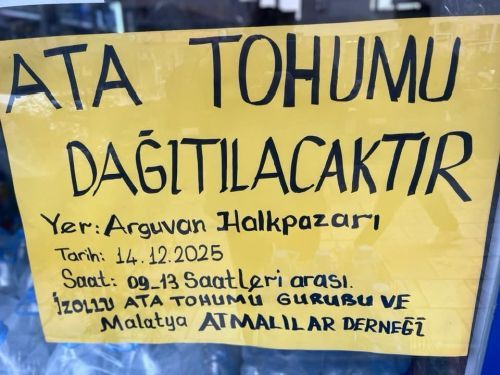 ATA TOHUMU
DAĞITILACAKTIR
Yer: Arguvan Halkpazarı
Tarih: 14.12.2025
Saat: 09_13 Saatleri arası.
İZOLLU ATA TOHUMU GURUBU VE
Malatya ATMALILAR DERNEĞİ